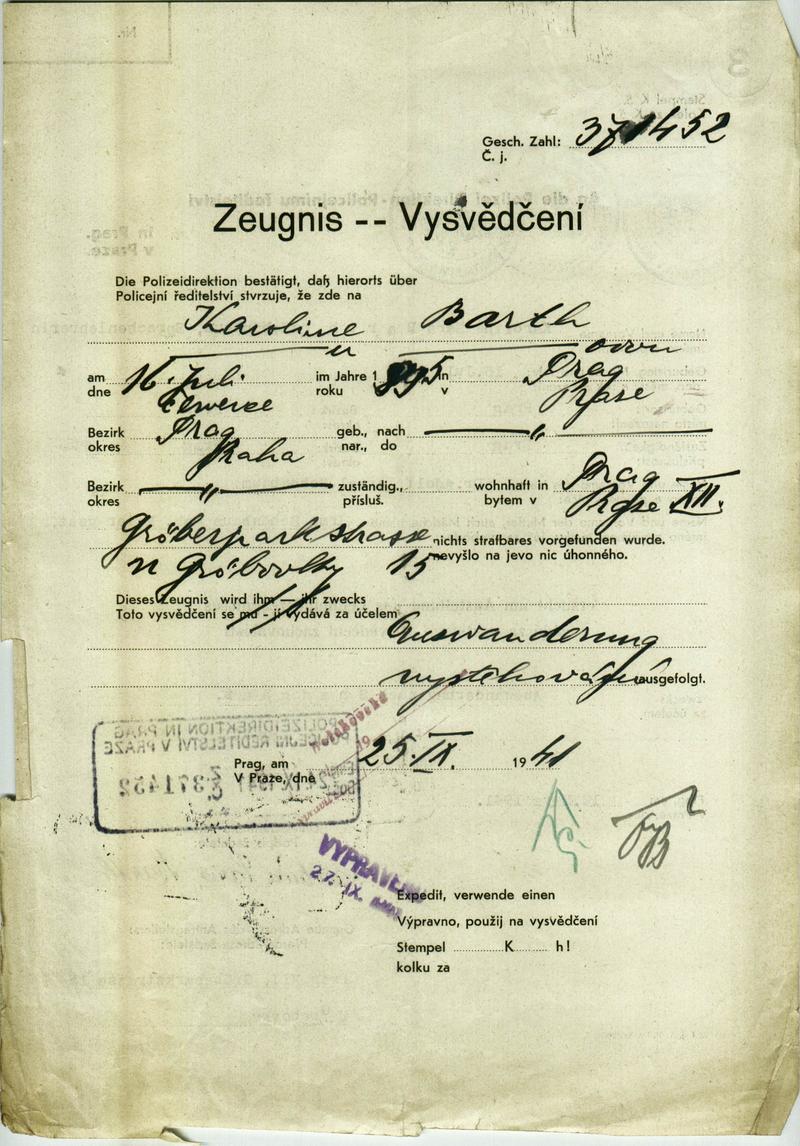 Gesch. Zahl: 371452
Č. j.
Zeugnis -- Vysvědčení
Die Polizeidirektion bestätigt, daß hierorts über
Policejní ředitelství stvrzuje, že zde na
Karoline Barth
u ovou
am 16. Juli im Jahre 1 895 in Prag
dne července roku v Praze
Bezirk Prag geb., nach — " —
okres Praha nar., do
Bezirk — " — zuständig., wohnhaft in Prag
okres přísluš. bytem v Praze XII.
Gröberparkstrasse nichts strafbares vorgefunden wurde.
n Gröbovky 15 nevyšlo na jevo nic úhonného.
Dieses Zeugnis wird ihm — ihr zwecks
Toto vysvědčení se mu - jí vydává za účelem
Auswanderung
vystěhování ausgefolgt.
POLIZEIDIREKTION IN PRAG
POLICEJNÍ ŘEDITELSTVÍ V PRAZE
Prag, am 25. IX. 19 41
V Praze, dne
Č 371452
VYPRAVENO
27. IX.
Expedit, verwende einen
Výpravno, použij na vysvědčení
Stempel K h!
kolku za